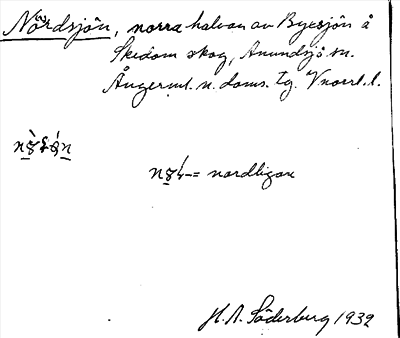 Nordsjön, norra halvan av Byesjön å
Skedom skog, Anundsjö sn.
Ångerml. n. doms. tg. Vnorrl. l.
= nordligare
H. A. Söderberg 1932